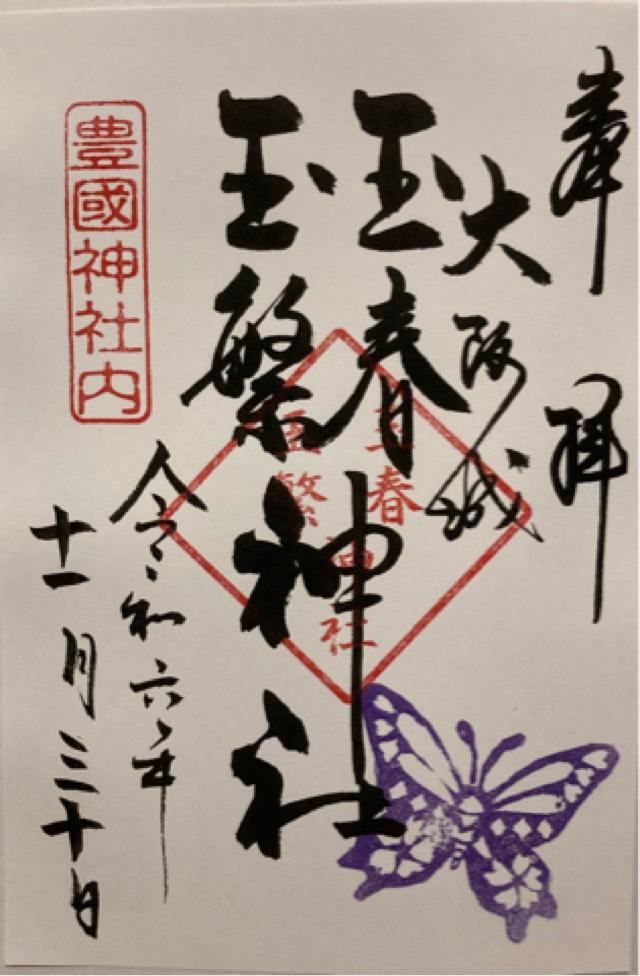 奉拝
大阪城
玉春
玉繁
神社
玉春
玉繁
神社
令和六年
十一月三十日
豊國神社内